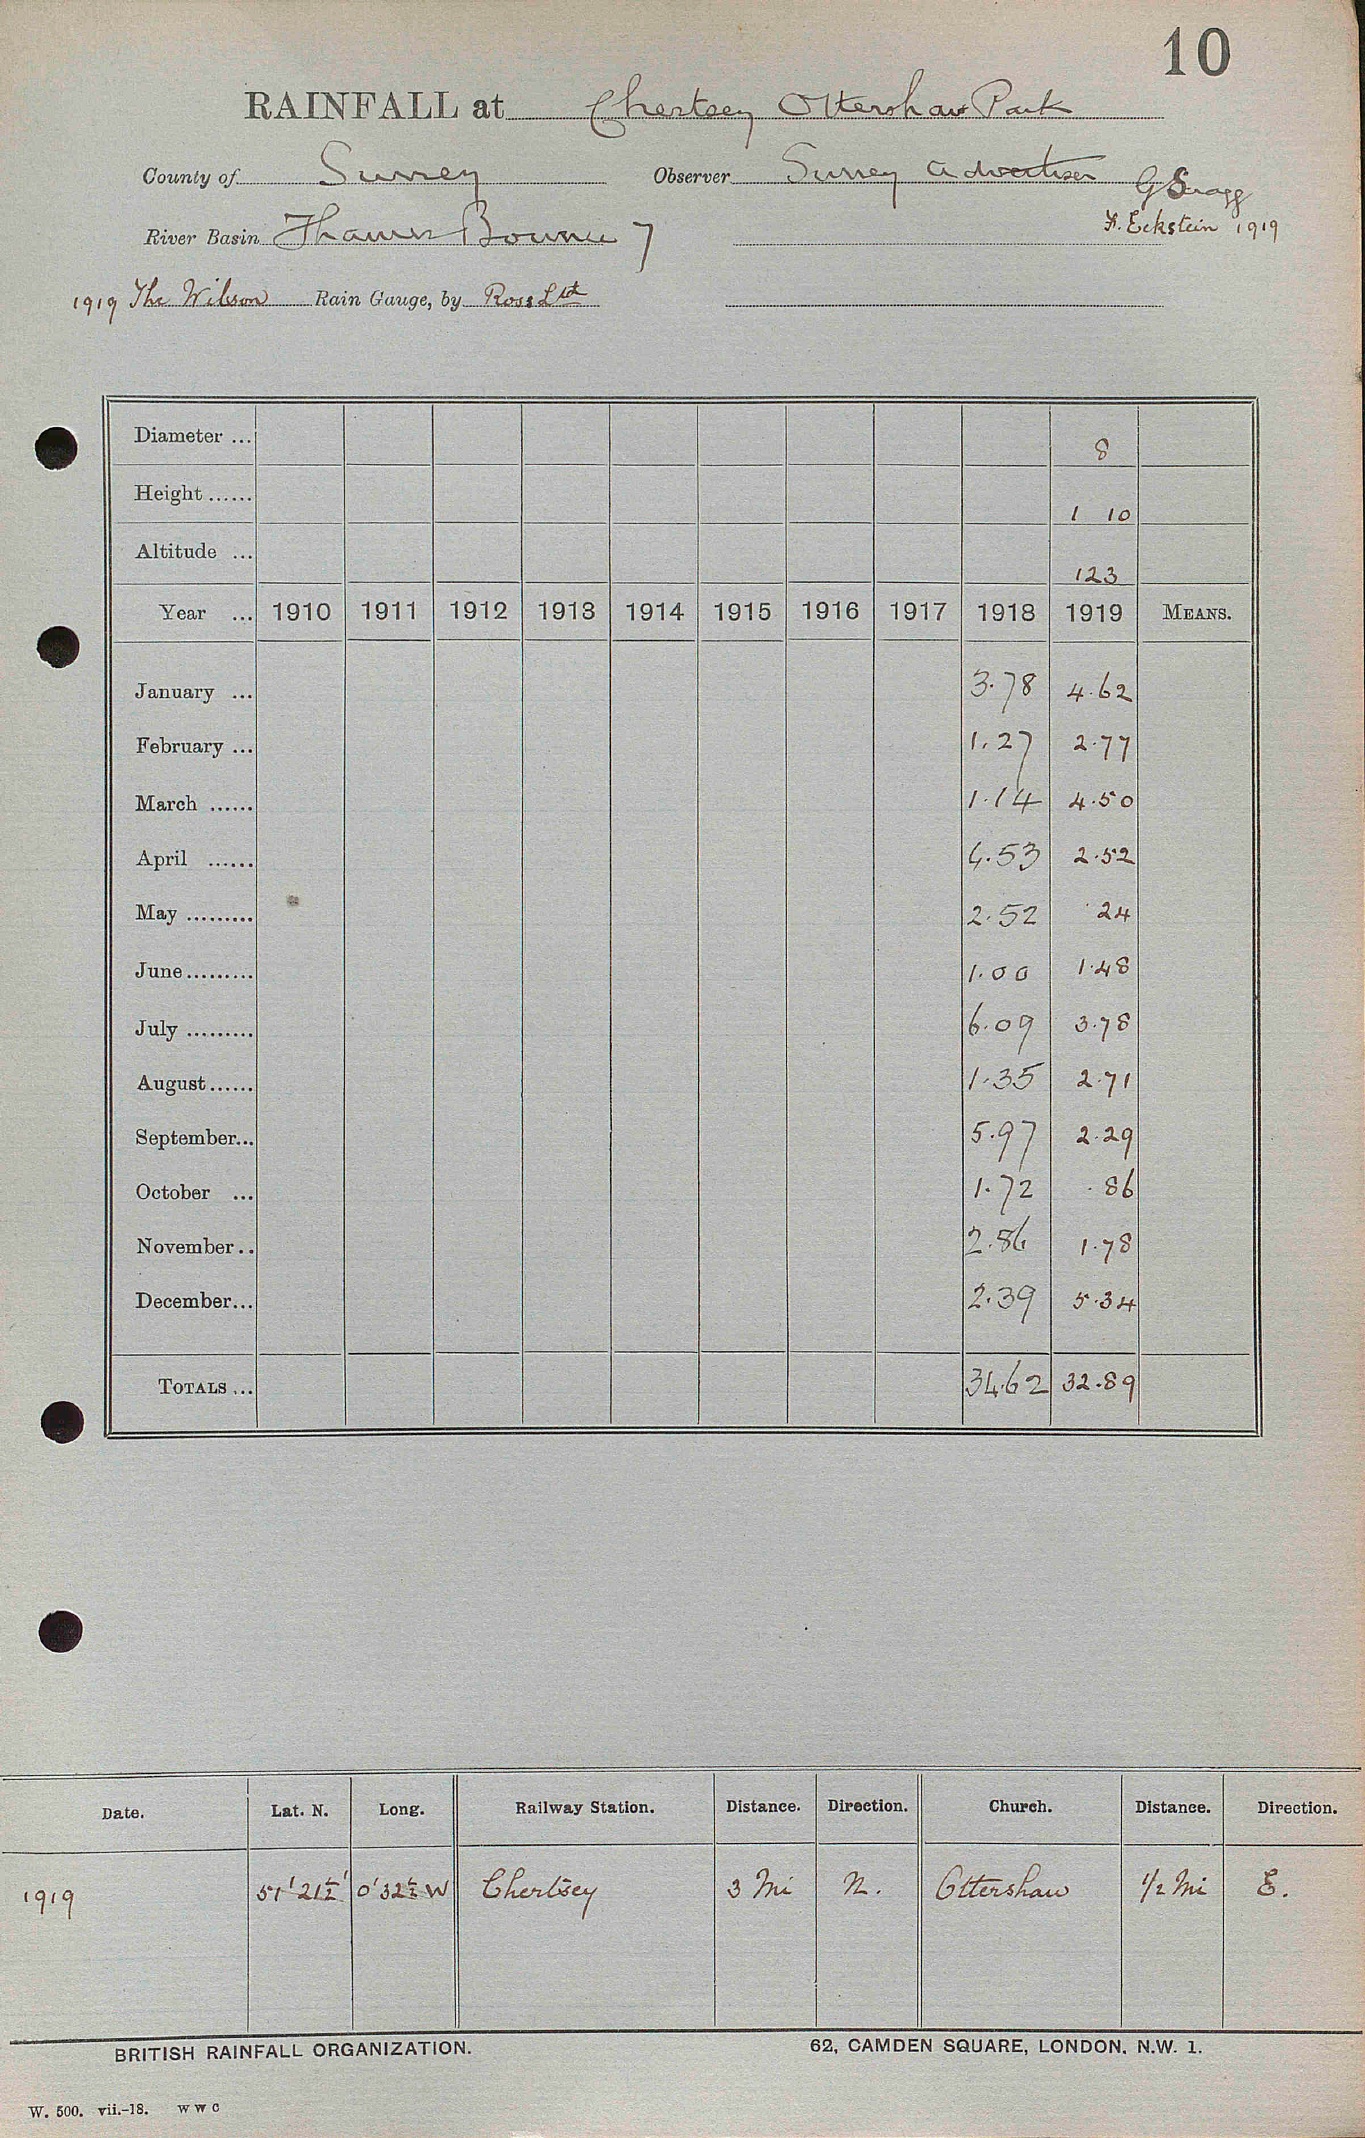 10
RAINFALL at Chertsey Ottershaw Park
County of Surrey Observer Surrey Advertiser G Snagg
River Basin Thames Bourne 7 F. Eckstein 1919
1919 The Wilson Rain Gauge, by Ross Ltd
Diameter ... 8
Height ...... 1 10
Altitude ... 123
Year ... 1910 1911 1912 1913 1914 1915 1916 1917 1918 1919 MEANS.
January ... 3.78 4.62
February ... 1.27 2.77
March ...... 1.14 4.50
April ...... 4.53 2.52
May ......... 2.52 .24
June......... 1.00 1.48
July ......... 6.09 3.78
August...... 1.35 2.71
September... 5.97 2.29
October ... 1.72 .86
November.. 2.86 1.78
December... 2.39 5.34
TOTALS ... 34.62 32.89
Date. Lat. N. Long. Railway Station. Distance. Direction. Church. Distance. Direction.
1919 51° 21½' 0° 32½ W Chertsey 3 Mi N. Ottershaw 1/2 Mi E.
BRITISH RAINFALL ORGANIZATION. 62, CAMDEN SQUARE, LONDON. N.W. 1.
W. 500. vii.-18. W W C